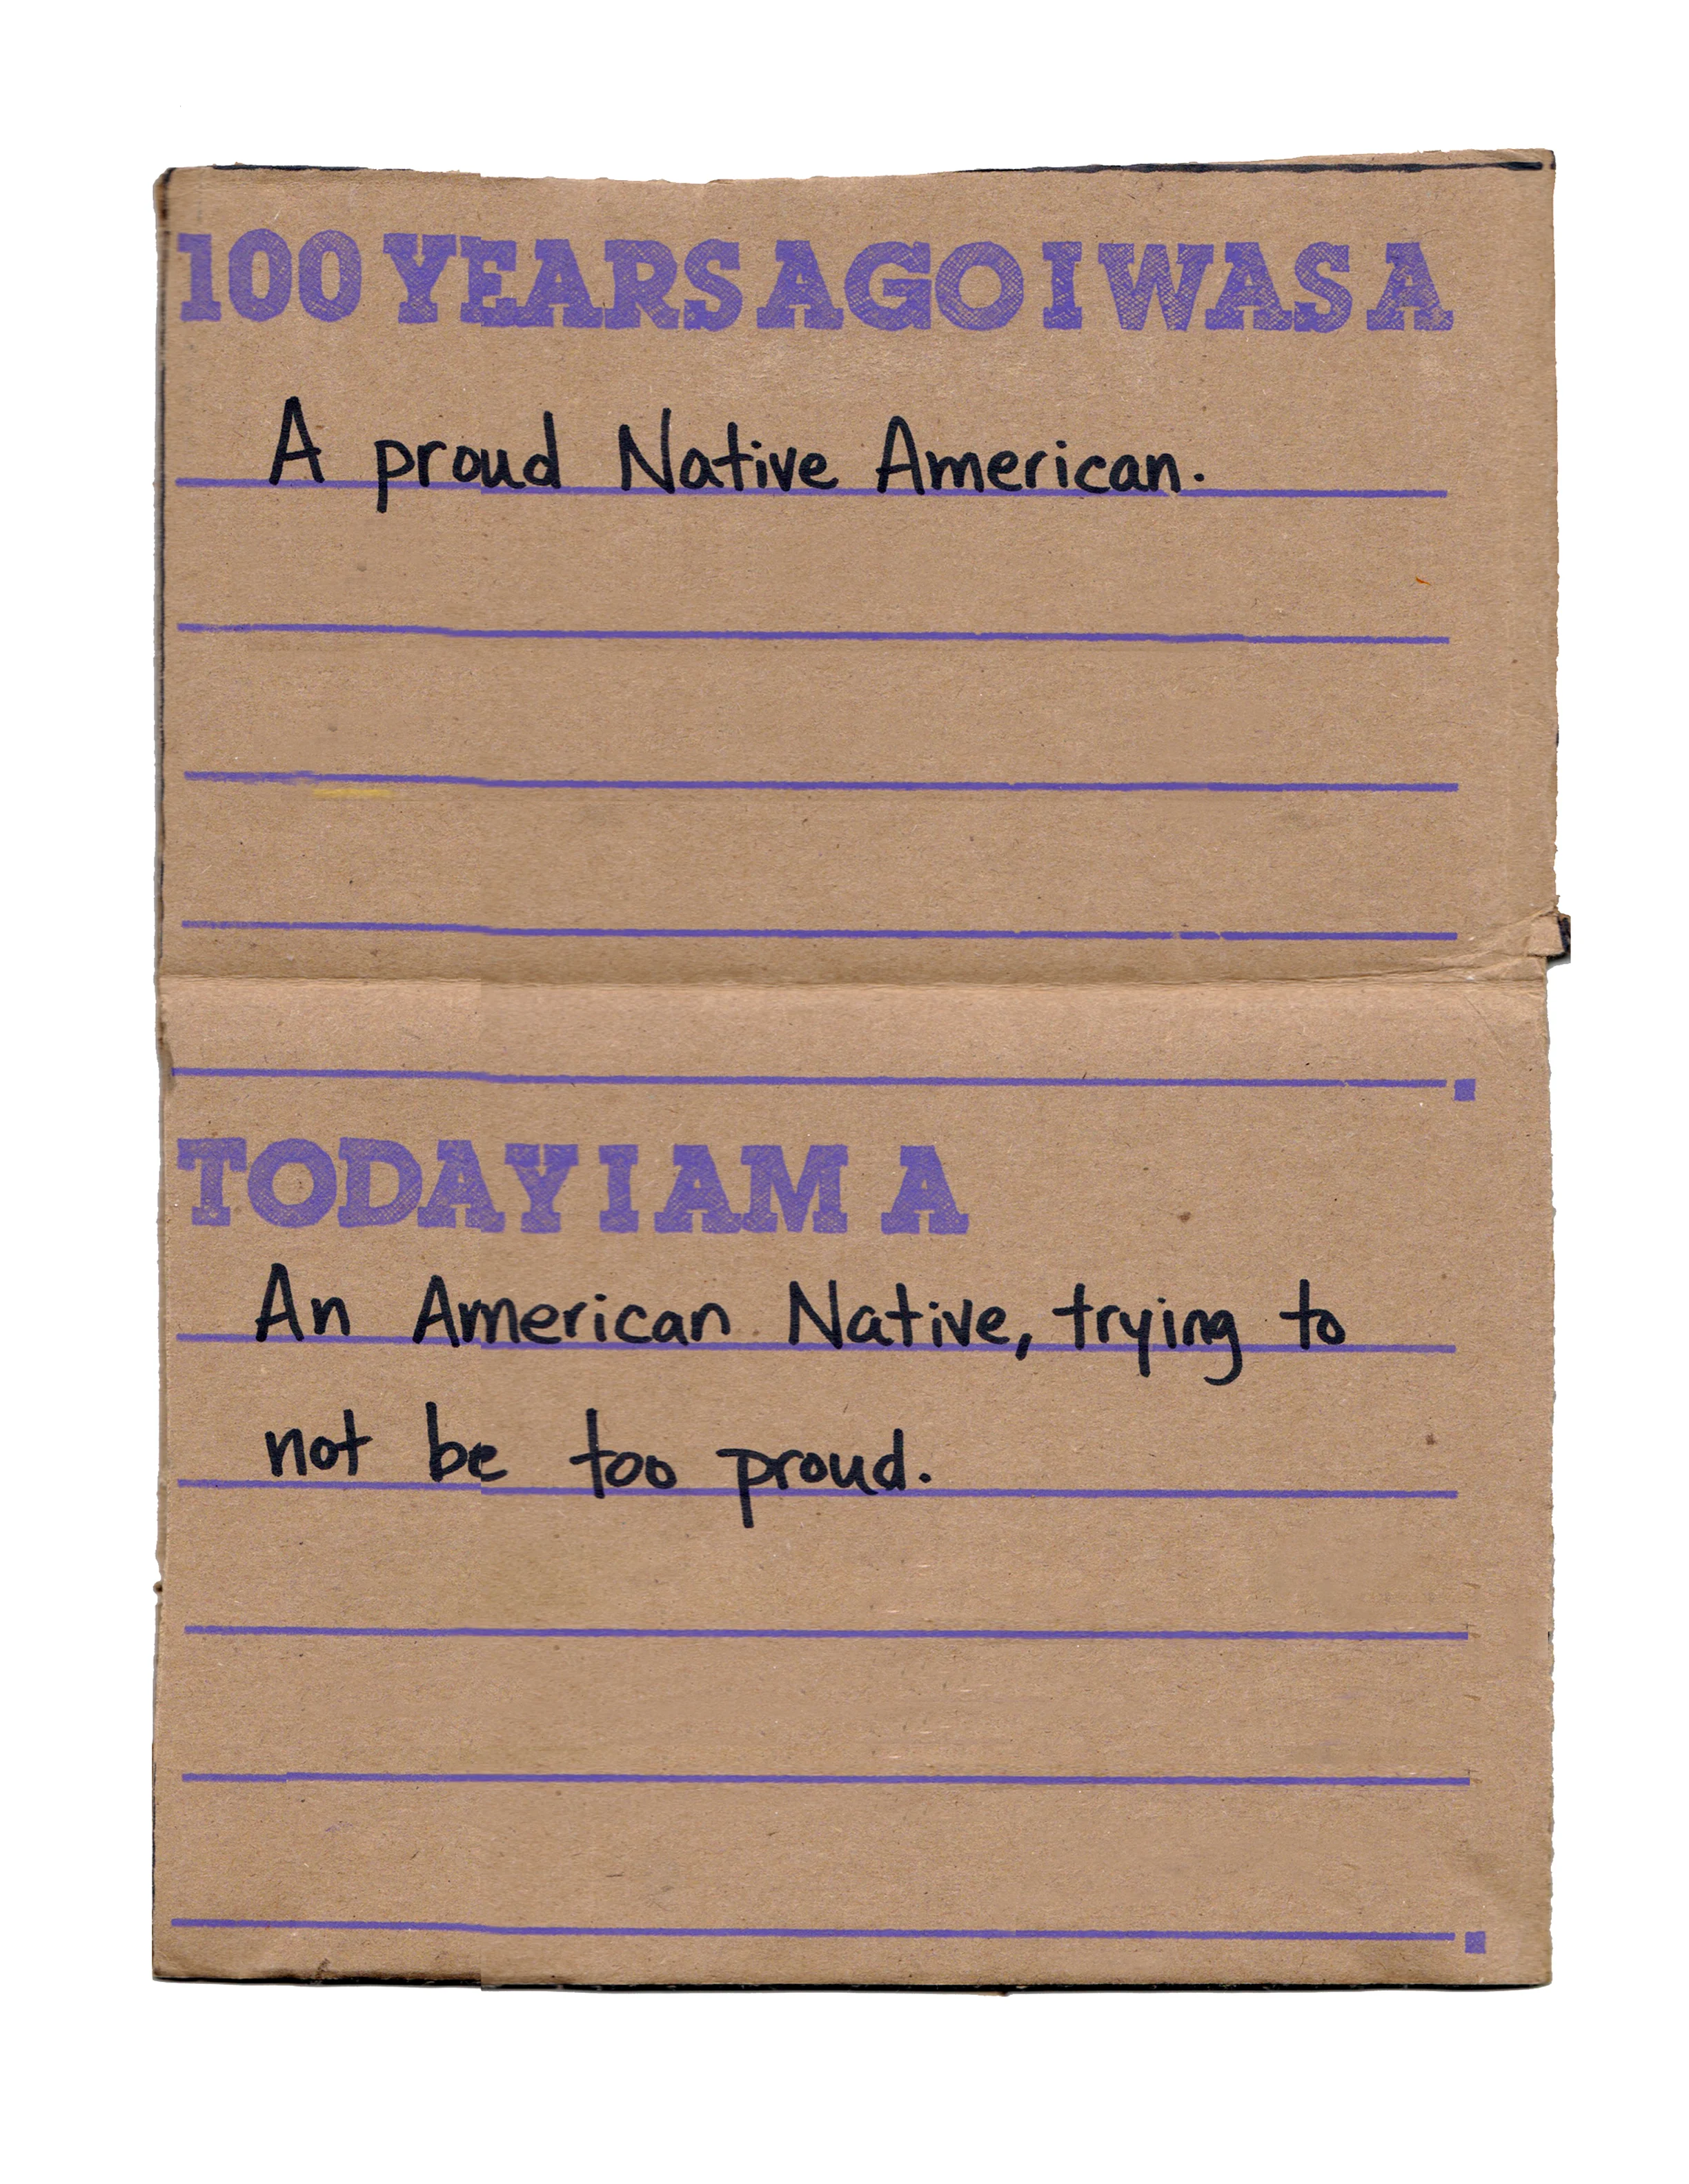 100 YEARS AGO I WAS A
A proud Native American.
TODAY I AM A
An American Native, trying to
not be too proud.